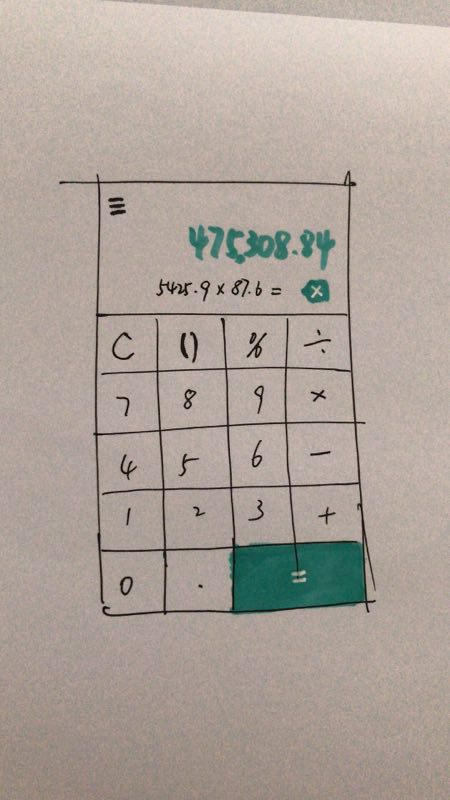 475,308.84
5425.9 × 87.6 = X
C () % ÷
7 8 9 ×
4 5 6 −
1 2 3 +
0 . =